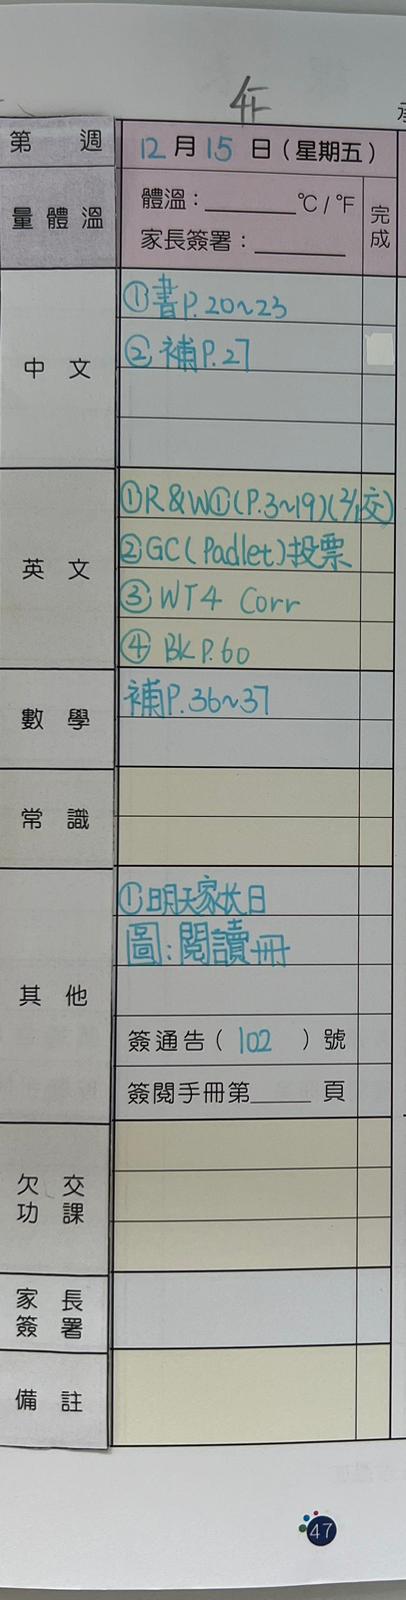 作
第 週
12月15日(星期五)
量體溫
體溫:________°C/°F
家長簽署:________
完成
中文
①書P.20~23
②補P.27
英文
①R&W①(P.3~19)(2/1交)
②GC(Padlet)投票
③WT4 Corr
④BK P.60
數學
補P.36~37
常識
其他
①明天家长日
圖:閱讀冊
簽通告(102)號
簽閱手冊第____頁
欠交功課
家長簽署
備註
47